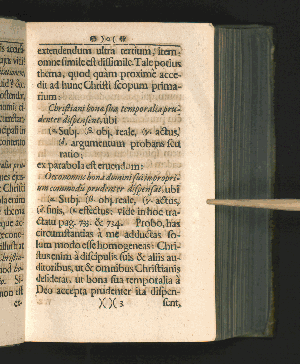 extendendum ultra tertium, item
omne simile est dissimile. Tale potius
thema, quod quàm proximè acce-
dit ad hunc Christi scopum prima-
rium:
Christiani bona sua temporalia pru-
denter dispensent, ubi
(α Subj. (β obj. reale, (γ actus,
(δ argumentum probans seu
ratio;
ex parabola est eruendum:
Oeconomus bona domini sui in propri-
um commodũ prudenter dispensat, ubi
(α Subj. (β obj. reale, (γ actus,
(δ finis, (ε effectus: vide in hoc tra-
ctatu pag. 733. & 734. Probo, has
circumstantias à me adductas so-
lum modo esse homogeneas: Chri-
stus enim à discipulis suis & aliis au-
ditoribus, ut & omnibus Christianis
desiderat, ut bona sua temporalia à
Deo accepta prudenter ita dispen-
)( )( 3 sent,